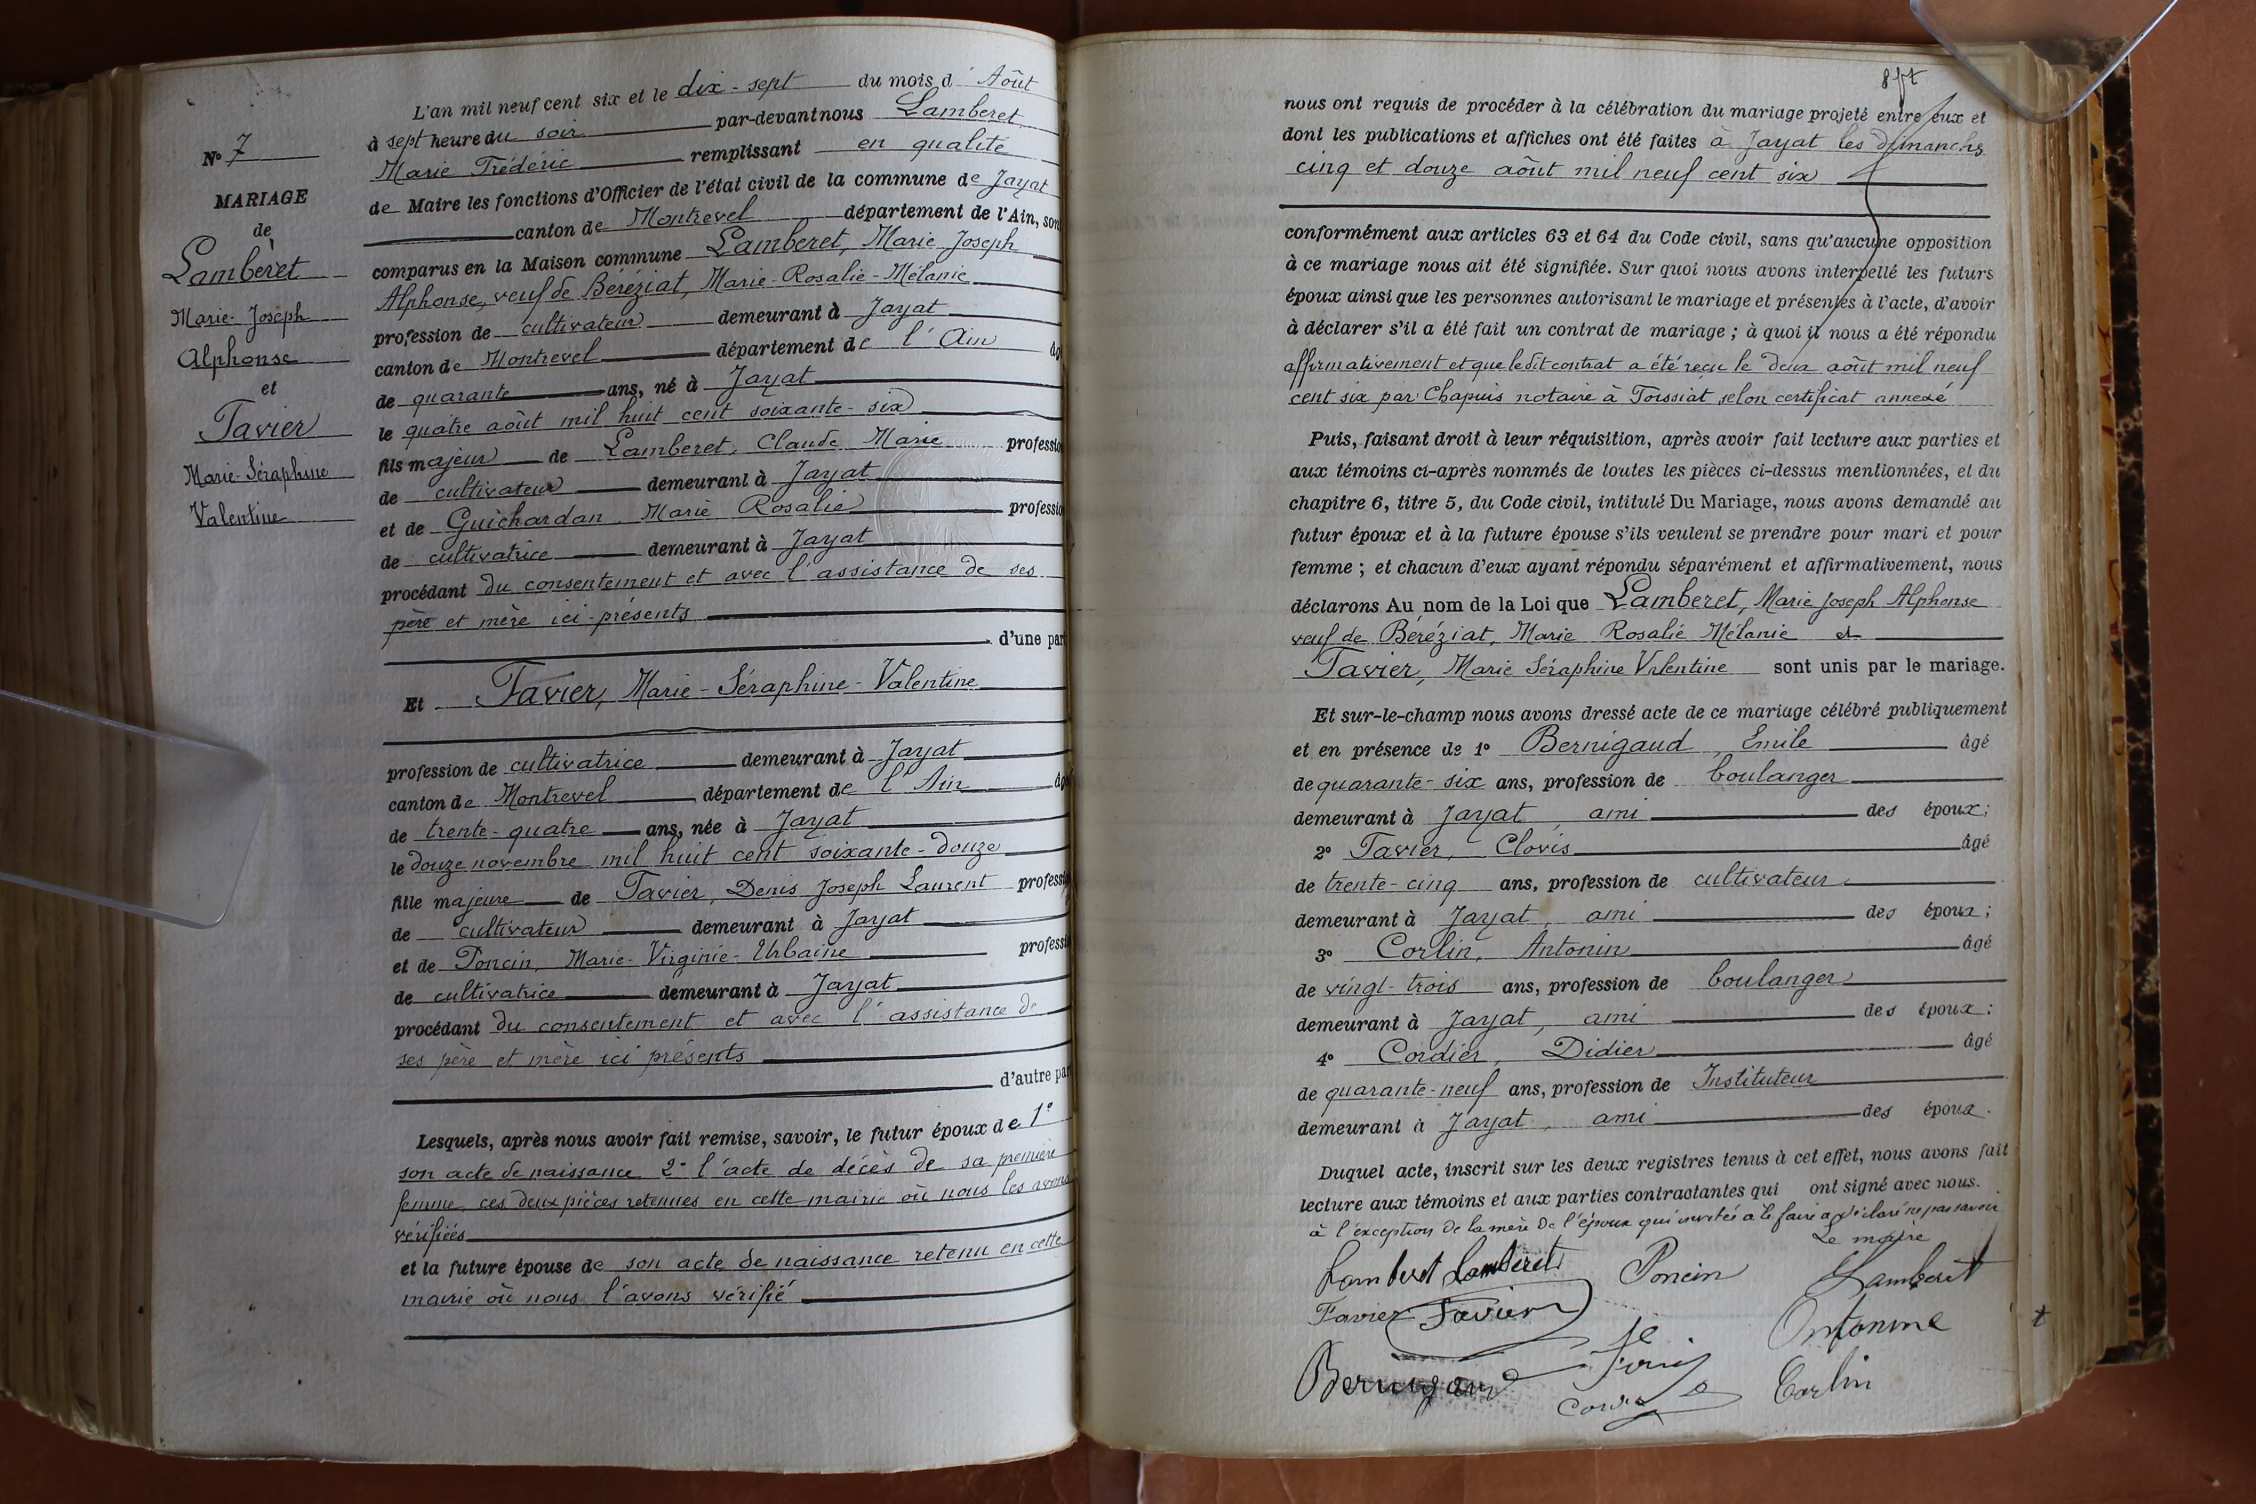 N° 7
MARIAGE
de
Lamberet
Marie-Joseph
Alphonse
et
Favier
Marie-Séraphine
Valentine
L'an mil neuf cent six et le dix-sept du mois d'Août
à sept heure du soir par-devant nous Lamberet
Marie Frédéric remplissant en qualité
de Maire les fonctions d'Officier de l'état civil de la commune de Jayat
canton de Montrevel département de l'Ain, sont
comparus en la Maison commune Lamberet, Marie Joseph
Alphonse, veuf de Béréziat, Marie-Rosalie-Mélanie
profession de cultivateur demeurant à Jayat
canton de Montrevel département de l'Ain âgé
de quarante ans, né à Jayat
le quatre août mil huit cent soixante-six
fils majeur de Lamberet, Claude Marie profession
de cultivateur demeurant à Jayat
et de Guichardan Marie Rosalie profession
de cultivatrice demeurant à Jayat
procédant du consentement et avec l'assistance de ses
père et mère ici présents
d'une part
Et Favier, Marie-Séraphine-Valentine
profession de cultivatrice demeurant à Jayat
canton de Montrevel département de l'Ain âgé
de trente-quatre ans, née à Jayat
le douze novembre mil huit cent soixante-douze
fille majeure de Favier, Denis Joseph Laurent profession
de cultivateur demeurant à Jayat
et de Poncin, Marie-Virginie-Urbaine profession
de cultivatrice demeurant à Jayat
procédant du consentement et avec l'assistance de
ses père et mère ici présents
d'autre part
Lesquels, après nous avoir fait remise, savoir, le futur époux de 1°
son acte de naissance 2° l'acte de décès de sa première
femme, ces deux pièces retenues en cette mairie où nous les avons
vérifiées
et la future épouse de son acte de naissance retenu en cette
mairie où nous l'avons vérifié
nous ont requis de procéder à la célébration du mariage projeté entre eux et
dont les publications et affiches ont été faites à Jayat les dimanches
cinq et douze août mil neuf cent six
conformément aux articles 63 et 64 du Code civil, sans qu'aucune opposition
à ce mariage nous ait été signifiée. Sur quoi nous avons interpellé les futurs
époux ainsi que les personnes autorisant le mariage et présentes à l'acte, d'avoir
à déclarer s'il a été fait un contrat de mariage ; à quoi il nous a été répondu
affirmativement et que ledit contrat a été reçu le deux août mil neuf
cent six par Chapuis notaire à Foissiat selon certificat annexé
Puis, faisant droit à leur réquisition, après avoir fait lecture aux parties et
aux témoins ci-après nommés de toutes les pièces ci-dessus mentionnées, et du
chapitre 6, titre 5, du Code civil, intitulé Du Mariage, nous avons demandé au
futur époux et à la future épouse s'ils veulent se prendre pour mari et pour
femme ; et chacun d'eux ayant répondu séparément et affirmativement, nous
déclarons Au nom de la Loi que Lamberet, Marie Joseph Alphonse
veuf de Béréziat, Marie Rosalie Mélanie et
Favier, Marie Séraphine Valentine sont unis par le mariage.
Et sur-le-champ nous avons dressé acte de ce mariage célébré publiquement
et en présence de 1° Bernigaud, Emile âgé
de quarante-six ans, profession de boulanger
demeurant à Jayat, ami des époux ;
2° Favier, Clovis âgé
de trente-cinq ans, profession de cultivateur
demeurant à Jayat, ami des époux ;
3° Corlin, Antonin âgé
de vingt-trois ans, profession de boulanger
demeurant à Jayat, ami des époux ;
4° Cordier, Didier âgé
de quarante-neuf ans, profession de Instituteur
demeurant à Jayat, ami des époux.
Duquel acte, inscrit sur les deux registres tenus à cet effet, nous avons fait
lecture aux témoins et aux parties contractantes qui ont signé avec nous.
à l'exception de la mère de l'époux qui invitée à le faire a déclaré ne pas savoir
Le maire
Lamberet Lamberet Poncin Lamberet
Favier Favier Antonine
Bernigaud Corlin